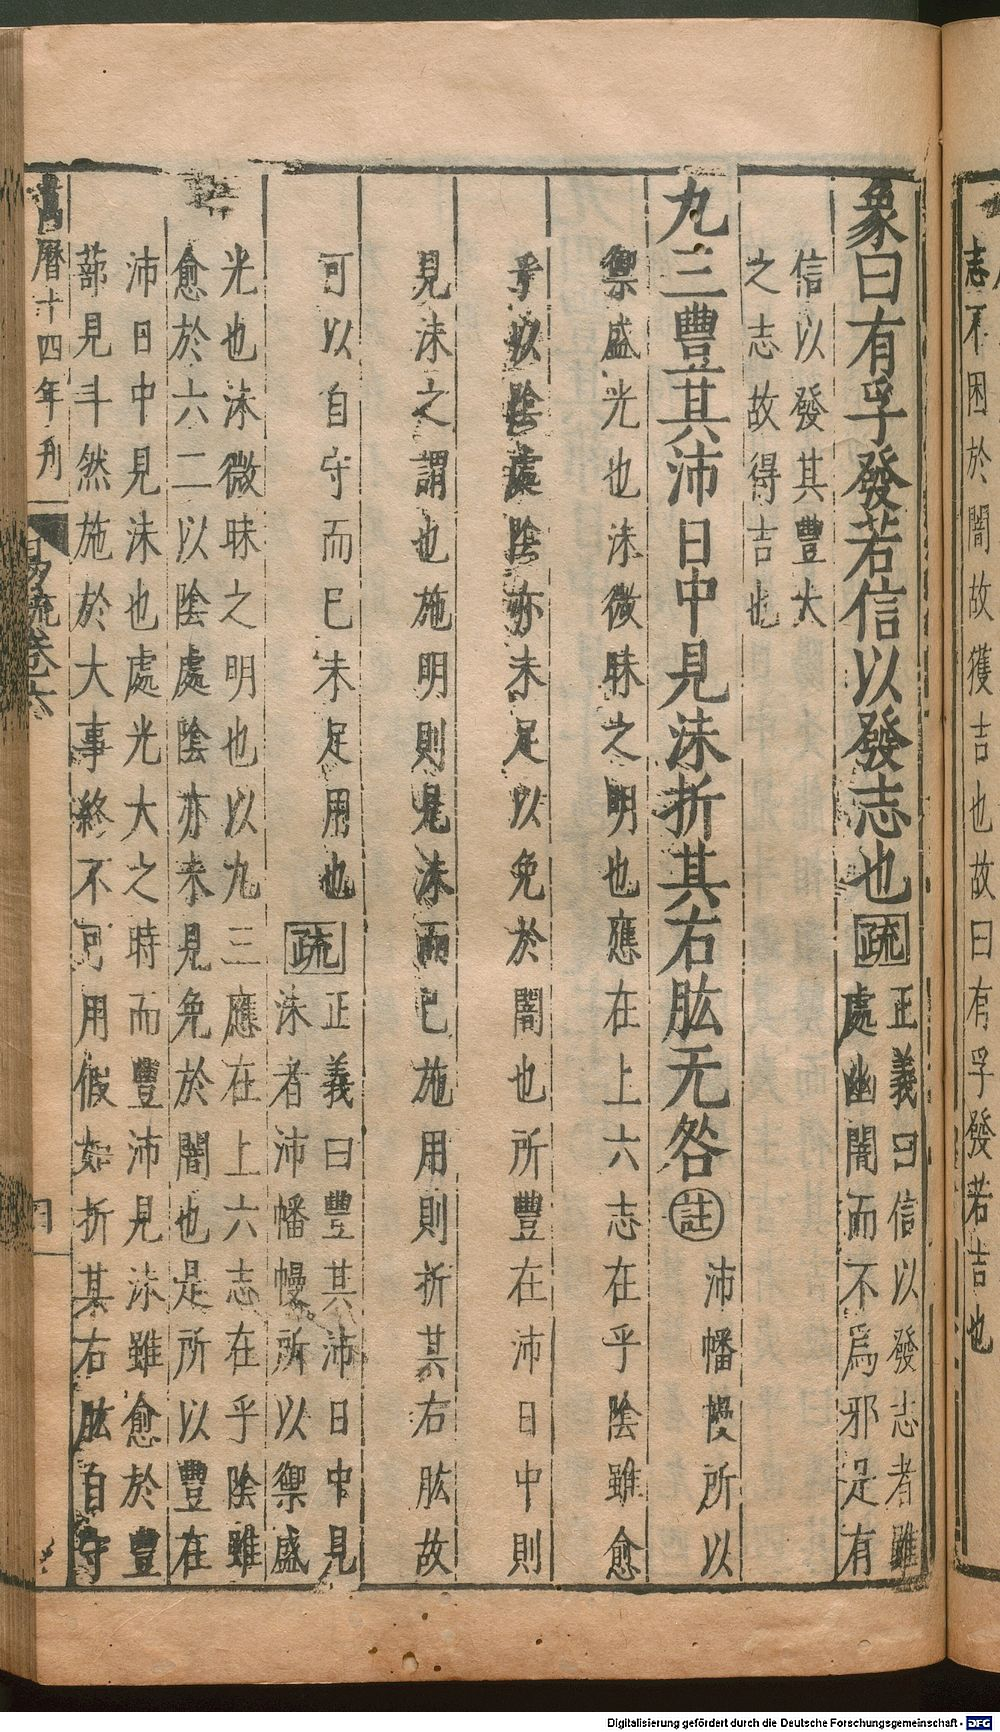 志不困於闇故獲吉也故曰有孚發若吉也
象曰有孚發若信以發志也疏正義曰信以發志者雖
處幽闇而不爲邪是有
信以發其豐大
之志故得吉也
九三豐其沛日中見沬折其右肱无咎註沛幡幔所以
禦盛光也沬微昧之明也應在上六志在乎陰雖愈
乎以陰處陰亦未足以免於闇也所豐在沛日中則
見沬之謂也施明則見沬而已施用則折其右肱故
可以自守而已未足用也疏正義曰豐其沛日中見
沬者沛幡幔所以禦盛
光也沬微昧之明也以九三應在上六志在乎陰雖
愈於六二以陰處陰亦未見免於闇也是所以豐在
沛日中見沬也處光大之時而豐沛見沬雖愈於豐
蔀見斗然施於大事終不可用假如折其右肱自守
萬曆十四年刊
易疏卷六
Digitalisierung gefördert durch die Deutsche Forschungsgemeinschaft - DFG